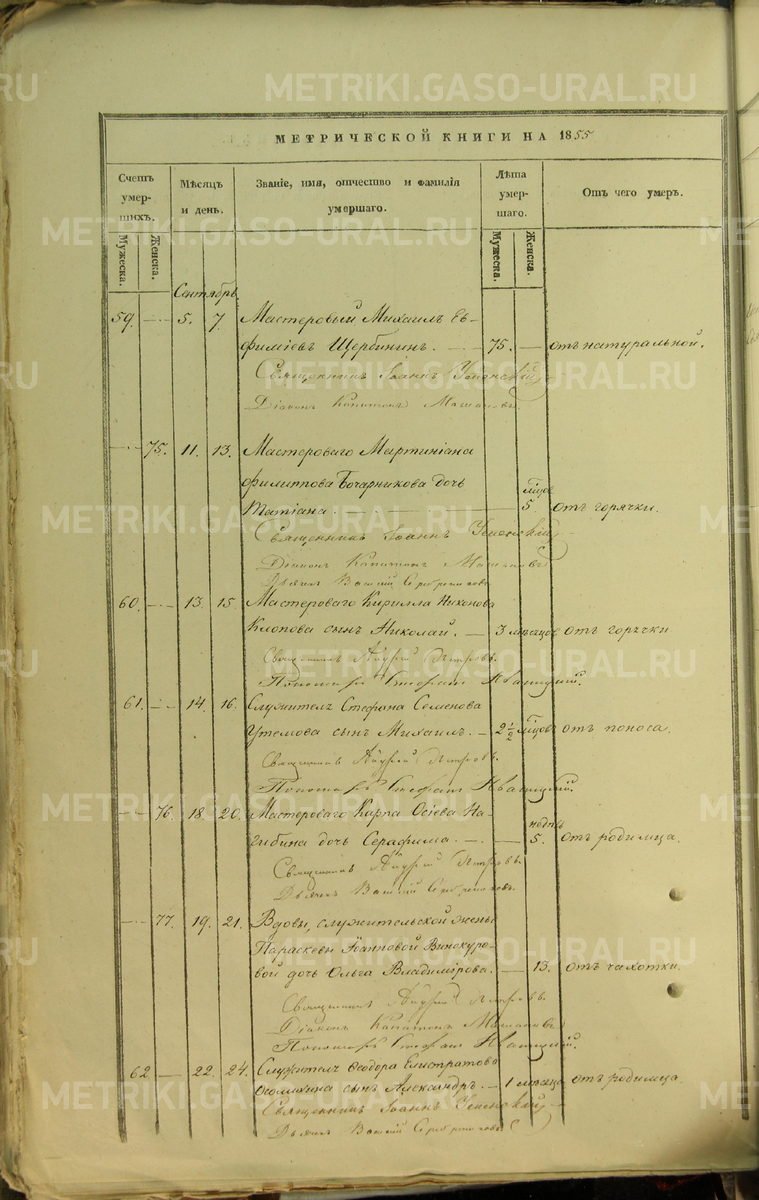 МЕТРИЧЕСКОЙ КНИГИ НА 1855
Счетъ умер-шихъ.
Мѣсяцъ и день.
Званіе, имя, отчество и фамилія умершаго.
Лѣта умер-шаго.
Отъ чего умеръ.
Мужеска. Женска. Мужеска. Женска.
Сентябрь
59. 5. 7 Мастеровый Михаилъ Ев-
фиміевъ Щербининъ. 75. отъ натуральной.
Священникъ Іоаннъ Успенскій
Діаконъ Капитонъ
75. 11. 13. Мастероваго Мартиніана
Филиппова Бочарникова дочь
Татіана. 5. мѣсцовъ отъ горячки.
Священникъ Іоаннъ Успенскій
Діаконъ Капитонъ
Дьячекъ Василій
60. 13. 15. Мастероваго Кирилла Никонова
Клопова сынъ Николай. 3 мѣсяцовъ отъ горячки
Священникъ Андрей Петровъ.
Пономарь Стефанъ
61. 14. 16. Служителя Стефана Семенова
Утемова сынъ Михаилъ. 2½ мѣсцовъ отъ поноса.
Священникъ Андрей Петровъ.
Пономарь Стефанъ
76. 18. 20. Мастероваго Карпа Осіева На-
гибина дочь Серафима. 5. недль отъ родимца.
Священникъ Андрей Петровъ.
Дьячекъ Василій
77. 19. 21. Вдовы, служительской жены
Параскевы Іоанновой Винокуро-
вой дочь Ольга Владимірова. 13. отъ чахотки.
Священникъ Андрей Петровъ.
Діаконъ Капитонъ
Пономарь Стефанъ
62. 22. 24. Служителя Феодора Елистратова
сынъ Александръ. 1 мѣсяца отъ родимца.
Священникъ Іоаннъ Успенскій
Дьячекъ Василій
METRIKI.GASO-URAL.RU